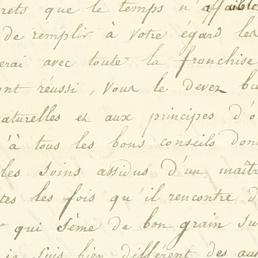 rets que le temps n'affaiblo
de remplir à Votre égard les
erai avec toute la franchise
ont réussi, Vous le devez bu
naturelles et aux principes d'o
'à tous les bons conseils don
les soins assidus d'un maîtr
tes les fois qu'il rencontre d
qui sème de bon grain su
je suis bien différent des aus